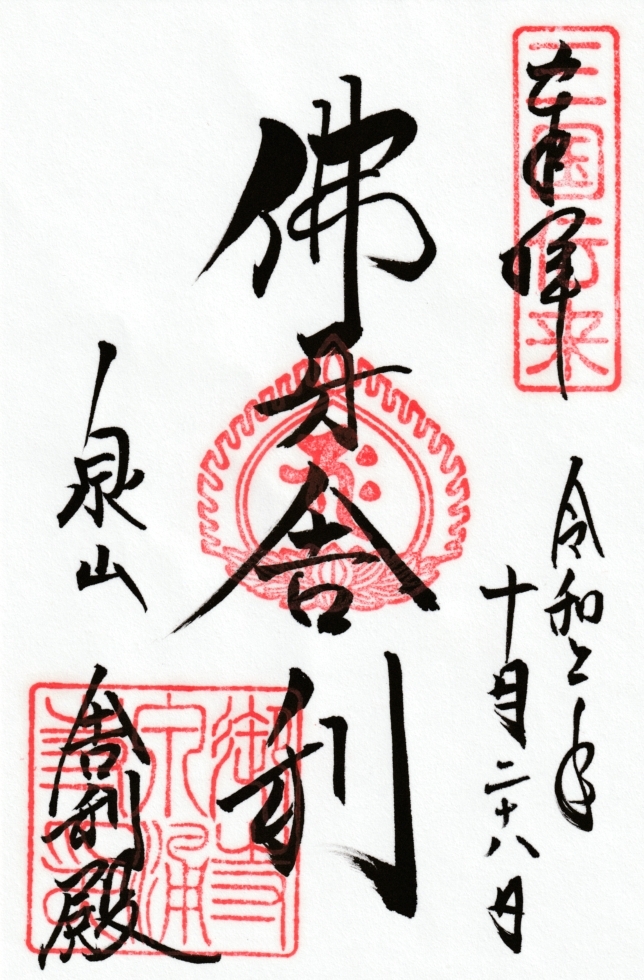 奉拝
三国伝来
令和二年
十月二十八日
佛牙舎利
泉山
舎利殿